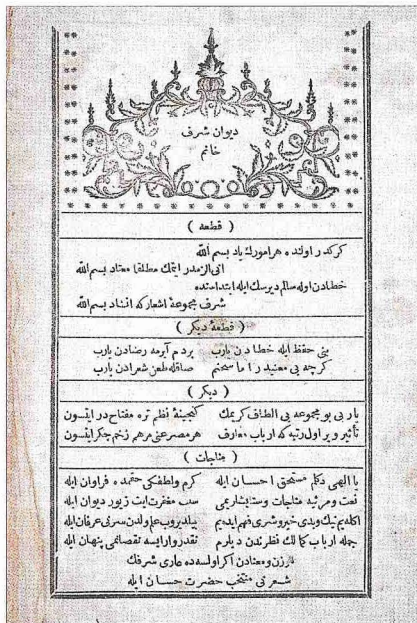 ديوان شرف
خانم
( قطعه )
كركدر اولنده هر امورك ياد بسم الله
انى الزمدر ايتمك مطلقا معتاد بسم الله
خطادن اوله سالم ديرسك ايله ابتداسنده
شرف مجموعهٔ اشعاركه انشاد بسم الله
( قطعهٔ ديكر )
بنى حفظ ايله خطادن يارب بر دم آيرمه رضادن يارب
كرچه بى معنيدر اما سخنم صاقله طعن شعرادن يارب
( ديكر )
يارب بو مجموعه يى الطاف كريمك كنجينهٔ نظم تره مفتاح در ايتسون
تأثير وير اول رتبه كه ارباب معارف هر مصرعنى مرهم زخم جكر ايتسون
( مناجات )
يا الهى دكلم مستحق احسان ايله كرم ولطفكى حقمده فراوان ايله
نعت ومرثيه مناجات وستايشلريمى سبب مغفرت ايت زيور ديوان ايله
اكله يم نيك وبدى خير وشرى فهم ايده يم بيلديروب علم لدن سرنى عرفان ايله
جمله ارباب كمالك نظرندن ديلرم نقدر وارايسه نقصانمى پنهان ايله
وزن ومعنادن اكر اولسه ده عارى شرفك
شعرنى منتخب حضرت حسان ايله